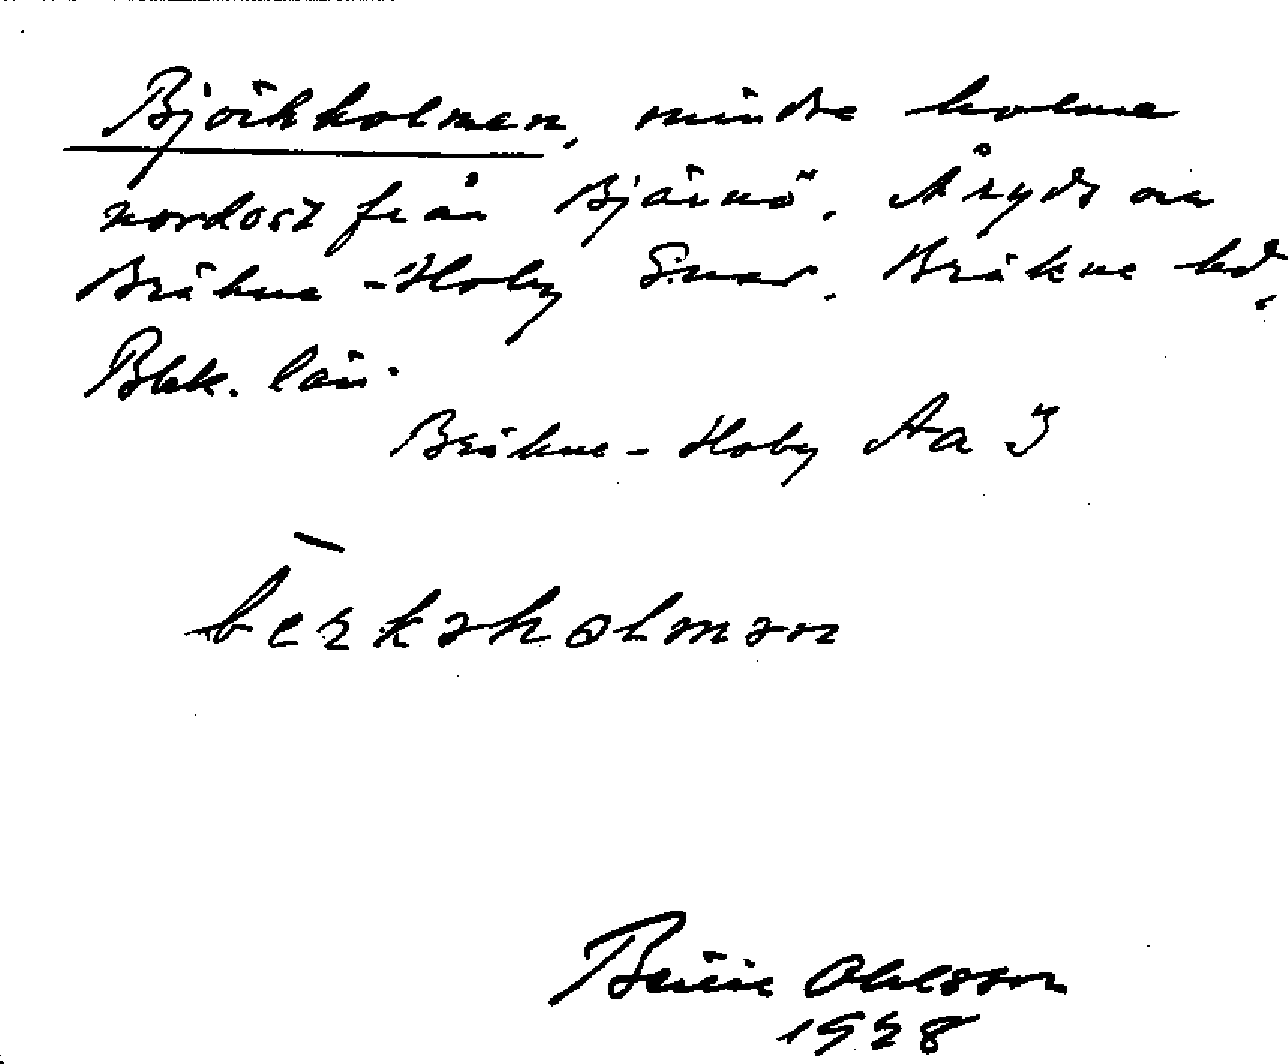 Björkholmen, mindre holme
nordost från Björnö. Åryds ou
Bräkne-Hoby Snar. Bräkne hd,
Blek. län.
Bräkne-Hoby Aa 3
berkaholmen
Ohlsson
1928